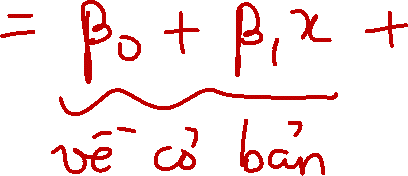 = β₀ + β₁x +
về cơ bản